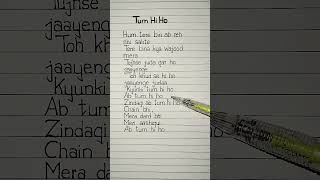 Tum Hi Ho
Hum tere bin ab reh
nhi sakte
Tere bina kya wajood
mera
Tujhse juda gar ho
jaayenge
Toh khud se hi ho
jaayenge judaa
Kyunki tum hi ho
Ab tum hi ho
Zindagi ab tum hi ho
Chain bhi,
Mera dard bhi
Meri aashiqui
Ab tum hi ho